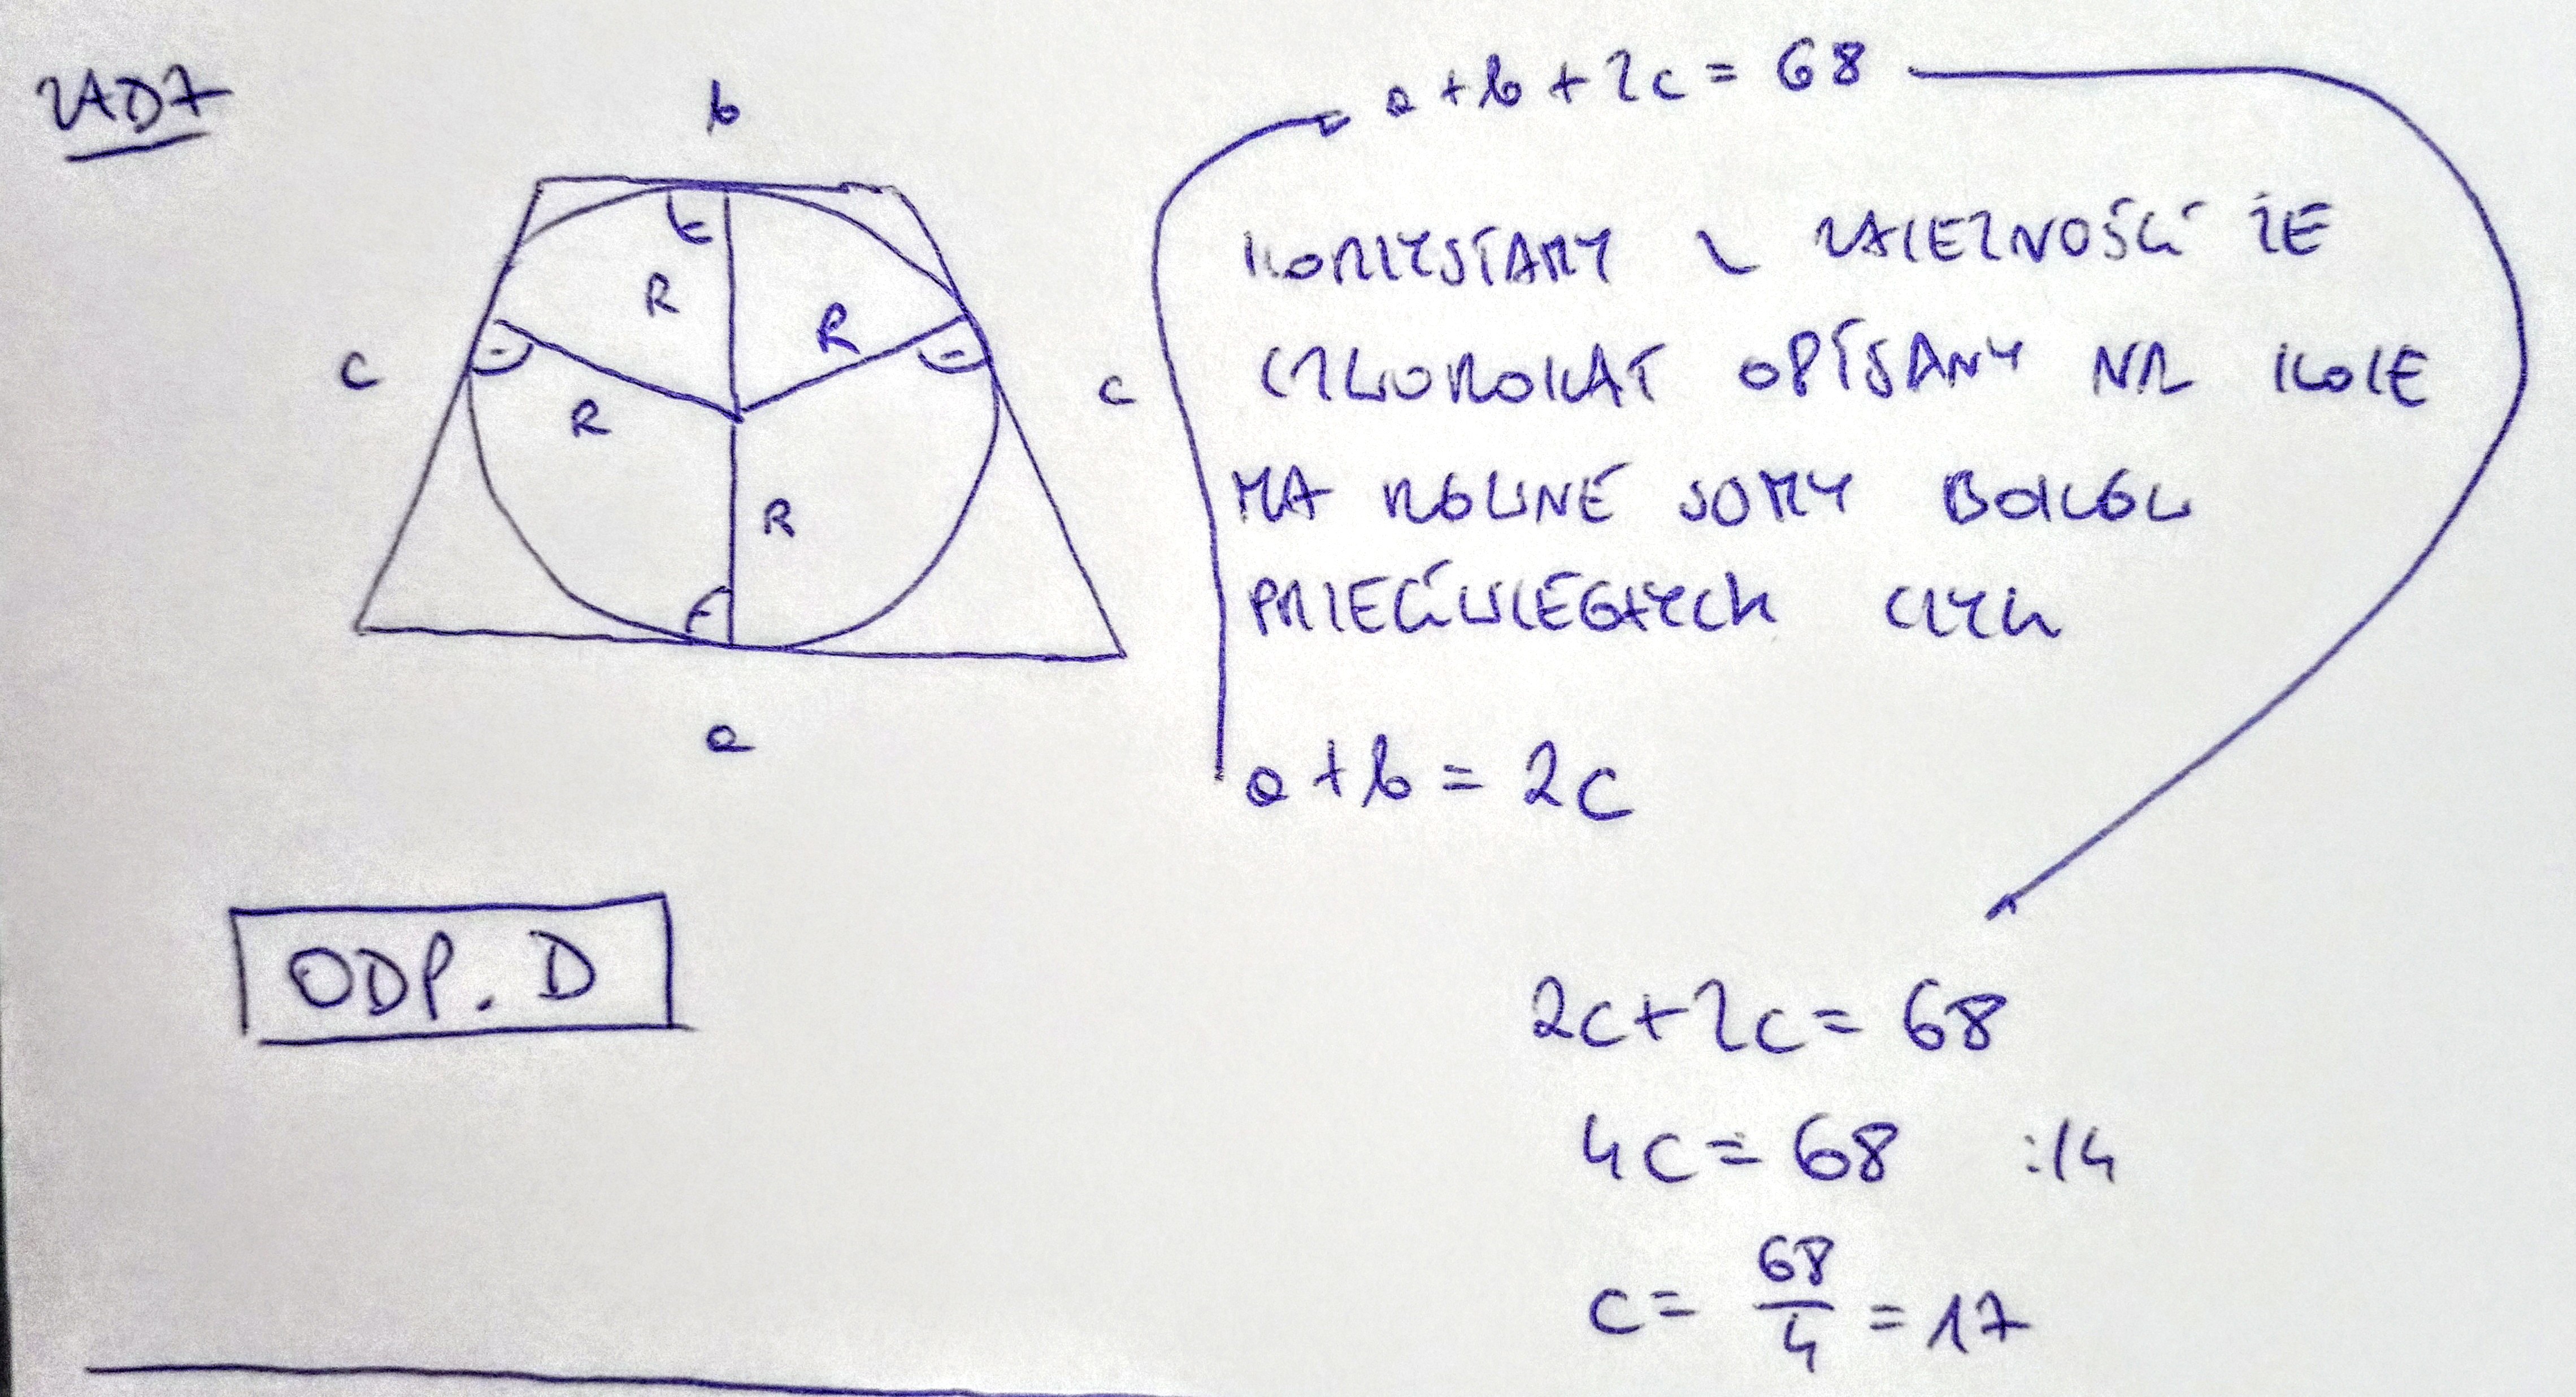 ZAD7
b
a + b + 2c = 68
KORZYSTAMY Z ZALEŻNOŚCI ŻE
CZWOROKĄT OPISANY NA KOLE
MA RÓWNE SUMY BOKÓW
PRZECIWLEGŁYCH CZYLI
R
R
c
R
c
R
a
a + b = 2c
ODP. D
2c + 2c = 68
4c = 68 :/4
c = 68/4 = 17